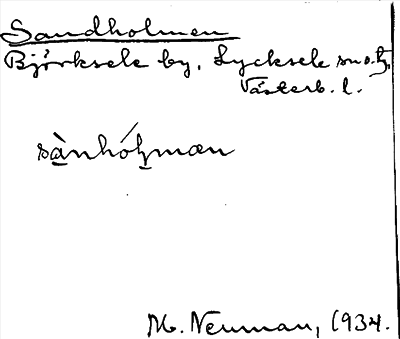 Sandholmen
Bjürksele by. Lycksele sn o. tg.
Västerb. l.
sànhóḥmæn
M. Neuman, 1934.